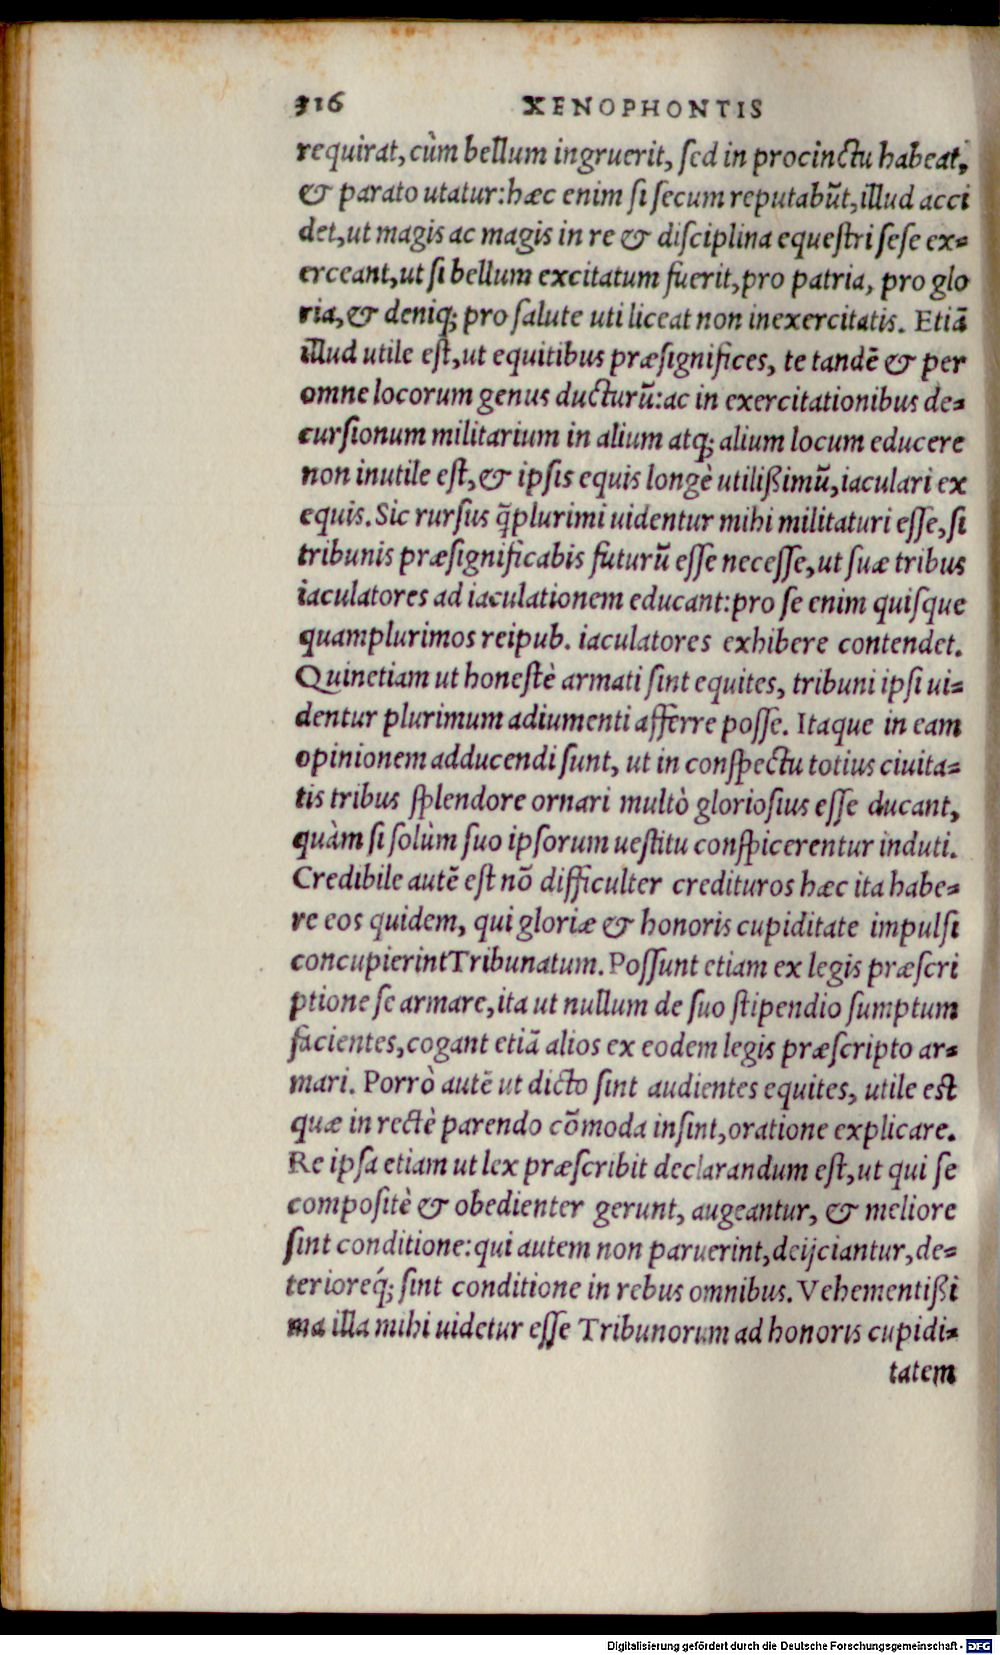 316 XENOPHONTIS
requirat, cùm bellum ingruerit, ſed in procinctu habeat,
& parato utatur: hæc enim ſi ſecum reputabũt, illud acci
det, ut magis ac magis in re & diſciplina equeſtri ſeſe ex-
erceant, ut ſi bellum excitatum fuerit, pro patria, pro glo
ria, & deniq; pro ſalute uti liceat non inexercitatis. Etiã
illud utile eſt, ut equitibus præſignifices, te tandẽ & per
omne locorum genus ducturũ: ac in exercitationibus de-
curſionum militarium in alium atq; alium locum educere
non inutile eſt, & ipſis equis longè utilißimũ, iaculari ex
equis. Sic rurſus q̃plurimi uidentur mihi militaturi eſſe, ſi
tribunis præſignificabis futurũ eſſe neceſſe, ut ſuæ tribus
iaculatores ad iaculationem educant: pro ſe enim quiſque
quamplurimos reipub. iaculatores exhibere contendet.
Quinetiam ut honeſtè armati ſint equites, tribuni ipſi ui-
dentur plurimum adiumenti afferre poſſe. Itaque in eam
opinionem adducendi ſunt, ut in conſpectu totius ciuita-
tis tribus ſplendore ornari multò glorioſius eſſe ducant,
quàm ſi ſolùm ſuo ipſorum ueſtitu conſpicerentur induti.
Credibile autẽ eſt nõ difficulter credituros hæc ita habe-
re eos quidem, qui gloriæ & honoris cupiditate impulſi
concupierint Tribunatum. Poſſunt etiam ex legis præſcri
ptione ſe armare, ita ut nullum de ſuo ſtipendio ſumptum
facientes, cogant etiã alios ex eodem legis præſcripto ar-
mari. Porrò autẽ ut dicto ſint audientes equites, utile eſt
quæ in rectè parendo cõmoda inſint, oratione explicare.
Re ipſa etiam ut lex præſcribit declarandum eſt, ut qui ſe
compoſitè & obedienter gerunt, augeantur, & meliore
ſint conditione: qui autem non paruerint, deijciantur, de-
terioreq́; ſint conditione in rebus omnibus. Vehementißi
ma illa mihi uidetur eſſe Tribunorum ad honoris cupidi-
tatem
Digitalisierung gefördert durch die Deutsche Forschungsgemeinschaft - DFG